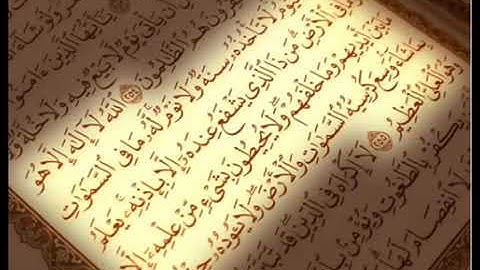 يَٰٓأَيُّهَا ٱلَّذِينَ ءَامَنُوٓا۟
يَأْتِىَ يَوْمٌ لَّا بَيْعٌ فِيهِ وَلَا خُلَّةٌ وَلَا
هُمُ ٱلظَّٰلِمُونَ ٢٥٤ ٱللَّهُ لَآ إِلَٰهَ إِلَّا هُوَ
لَا تَأْخُذُهُۥ سِنَةٌ وَلَا نَوْمٌ لَّهُۥ مَا فِى ٱلسَّمَٰوَٰتِ
فِى ٱلْأَرْضِ مَن ذَا ٱلَّذِى يَشْفَعُ عِندَهُۥٓ إِلَّا بِإِذْنِهِۦ يَعْلَمُ
مَا بَيْنَ أَيْدِيهِمْ وَمَا خَلْفَهُمْ وَلَا يُحِيطُونَ بِشَىْءٍ مِّنْ عِلْمِهِۦٓ إِلَّا
بِمَا شَآءَ وَسِعَ كُرْسِيُّهُ ٱلسَّمَٰوَٰتِ وَٱلْأَرْضَ وَلَا يَـُٔودُهُۥ
وَهُوَ ٱلْعَلِىُّ ٱلْعَظِيمُ ٢٥٥ لَآ إِكْرَاهَ فِى ٱلدِّينِ قَد تَّبَيَّنَ
يَكْفُرْ بِٱلطَّٰغُوتِ وَيُؤْمِنۢ
لَا ٱنفِصَامَ لَهَا